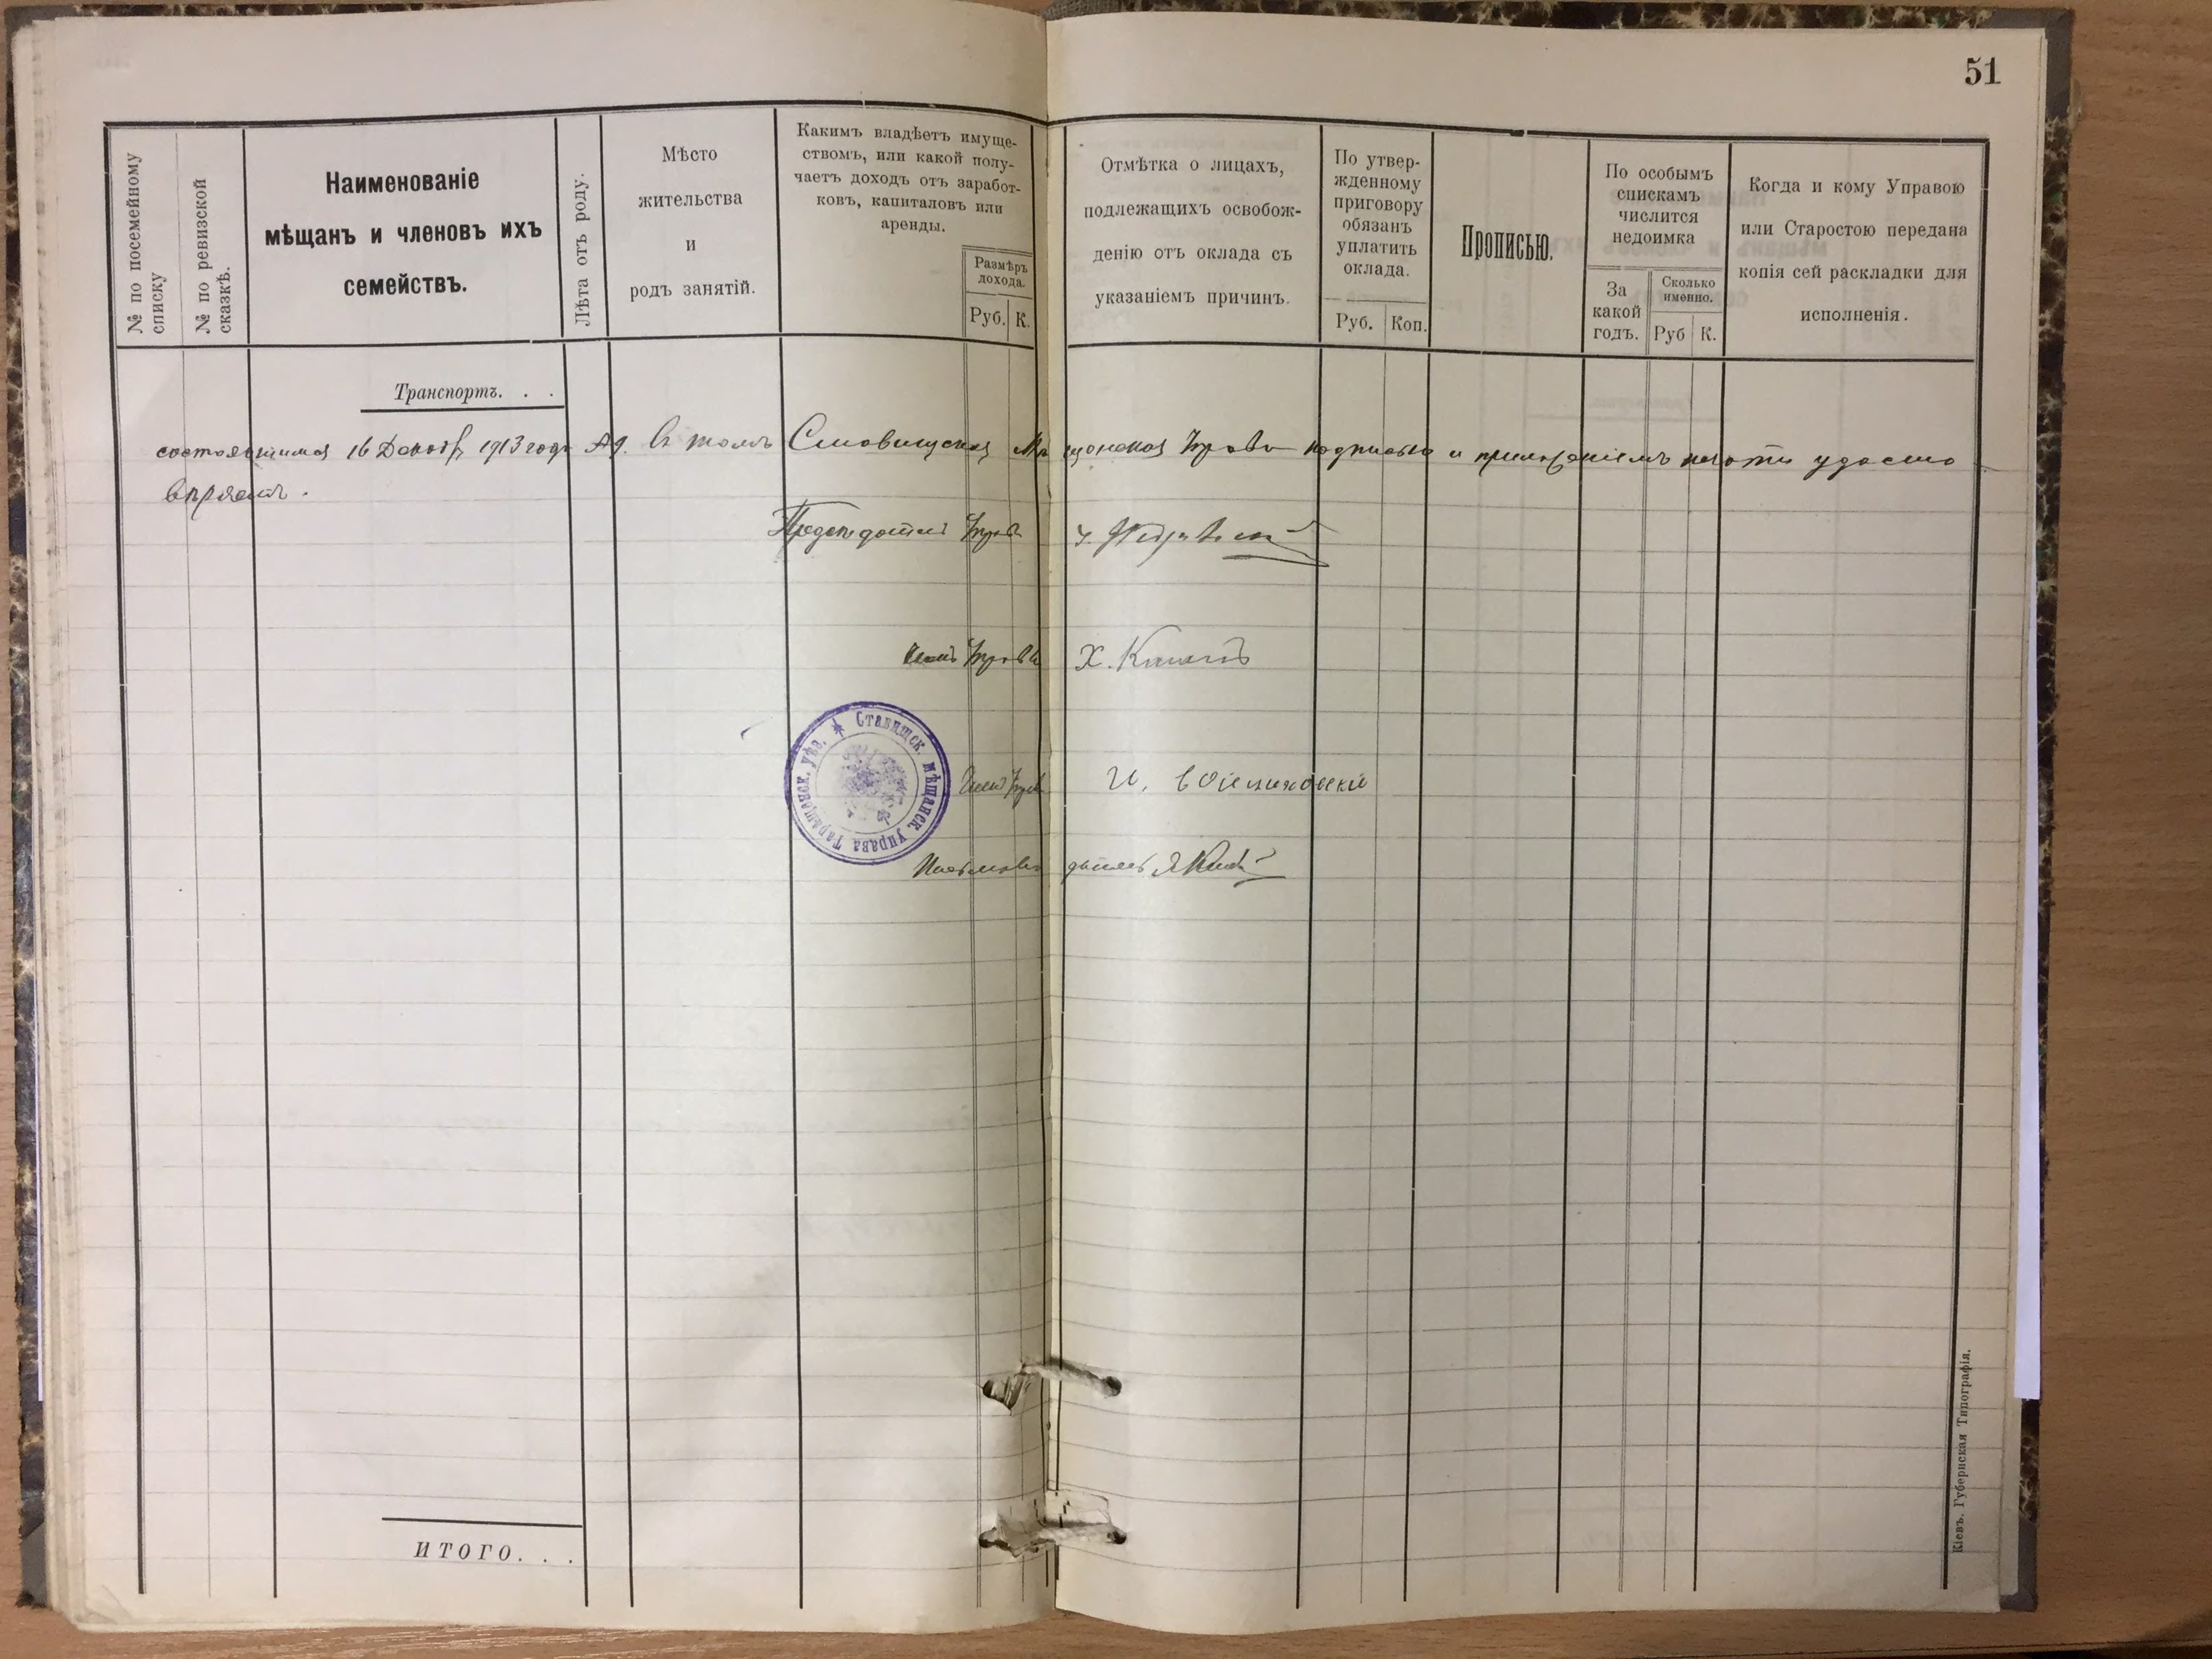 51
№ по посемейному
списку
№ по ревизской
сказкѣ.
Наименованіе
мѣщанъ и членовъ ихъ
семействъ.
Лѣта отъ роду.
Мѣсто
жительства
и
родъ занятій.
Какимъ владѣетъ имуще-
ствомъ, или какой полу-
чаетъ доходъ отъ заработ-
ковъ, капиталовъ или
аренды.
Размѣръ
дохода.
Руб. К.
Отмѣтка о лицахъ,
подлежащихъ освобож-
денію отъ оклада съ
указаніемъ причинъ.
По утвер-
жденному
приговору
обязанъ
уплатить
оклада.
Руб. Коп.
Прописью.
По особымъ
спискамъ
числится
недоимка
За
какой
годъ.
Сколько
именно.
Руб К.
Когда и кому Управою
или Старостою передана
копія сей раскладки для
исполненія.
Транспортъ. . .
состоявшимся 16 Декабр 1913 года № 9. Въ томъ Ставищская Мѣщанская Управа подписью и приложеніемъ печати удосто
вѣряетъ.
Предсѣдатель Управы
Членъ Управы Х.
Ставищск. мѣщанск. управа Таращанск. уѣз.
Членъ Управы И.
Письмоводитель
ИТОГО. . .
Кіевъ. Губернская Типографія.